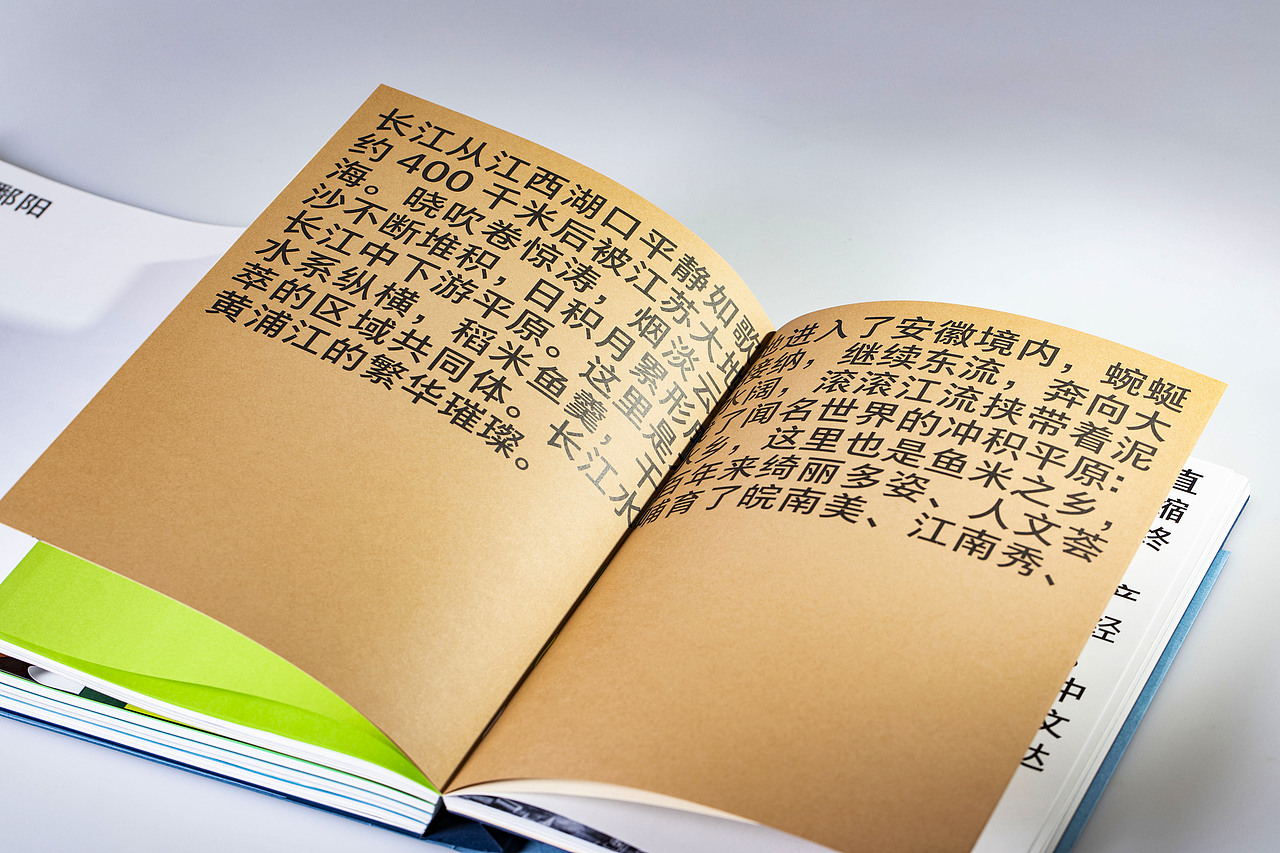 鄱阳
长江从江西湖口平静如歌地进入了安徽境内，蜿蜒
约 400 千米后被江苏大地接纳，继续东流，奔向大
海。晓吹卷惊涛，烟淡云水阔，滚滚江流挟带着泥
沙不断堆积，日积月累形成了闻名世界的冲积平原：
长江中下游平原。这里是水乡，这里也是鱼米之乡，
水系纵横，稻米鱼羹，千百年来绮丽多姿、人文荟
萃的区域共同体。长江水哺育了皖南美、江南秀、
黄浦江的繁华璀璨。
直
宿
终
经
中
文
达